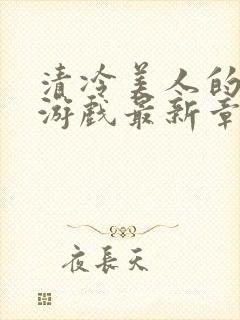 清冷美人的
游戏最新章
夜長天